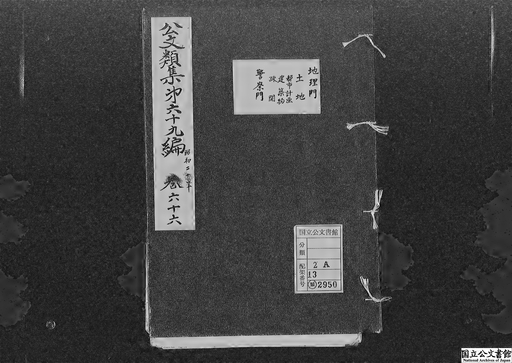 公文類集第六十九編
昭和二十年
巻六十六
地理門
土地
都市計画
建築物
政関
警察門
国立公文書館
分類
配架番号
2A
13
類2950
国立公文書館
National Archives of Japan